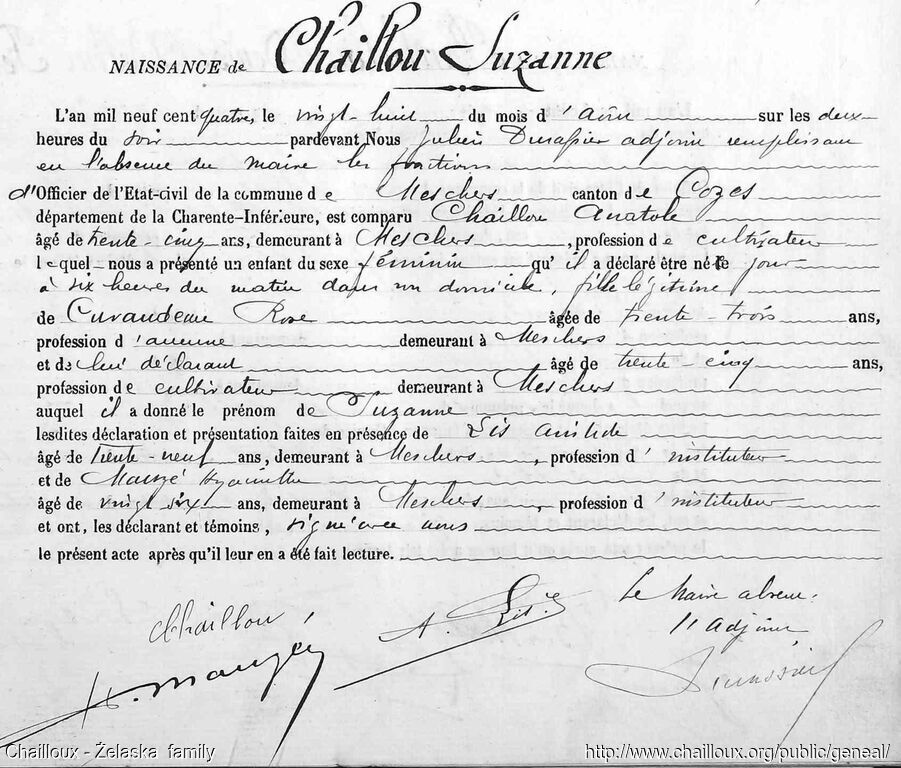 NAISSANCE de Chaillou Suzanne
L'an mil neuf cent quatre, le vingt-huit du mois d'Août sur les deux
heures du soir pardevant Nous Julien adjoint remplissant
en l'absence du maire les fonctions
d'Officier de l'Etat-civil de la commune de Meschers canton de Cozes
département de la Charente-Inférieure, est comparu Chaillou Anatole
âgé de trente-cinq ans, demeurant à Meschers, profession de cultivateur
lequel nous a présenté un enfant du sexe féminin qu'il a déclaré être né ce jour
à six heures du matin dans son domicile, fille légitime
de Curaudeau Rose âgée de trente-trois ans,
profession d'aucune demeurant à Meschers
et de lui déclarant âgé de trente-cinq ans,
profession de cultivateur demeurant à Meschers
auquel il a donné le prénom de Suzanne
lesdites déclaration et présentation faites en présence de Lis Aristide
âgé de trente-neuf ans, demeurant à Meschers, profession d'instituteur
et de Mauzé Hyacinthe
âgé de vingt six ans, demeurant à Meschers, profession d'instituteur
et ont, les déclarant et témoins, signé avec nous
le présent acte après qu'il leur en a été fait lecture.
Chaillou
A. Lis
Le Maire absent:
l'Adjoint
H. Mauzé
Chailloux - Żelaska family
http://www.chailloux.org/public/geneal/